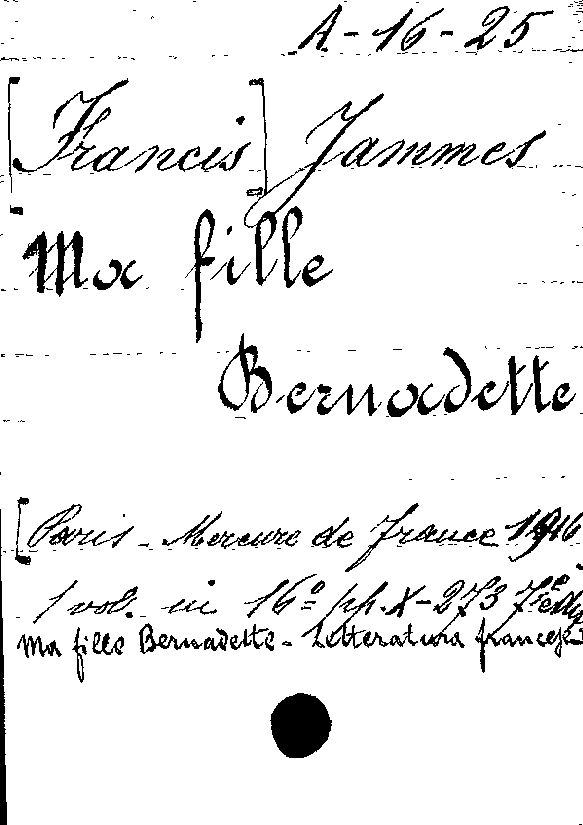 A-16-25
[Francis] Jammes
Ma fille
Bernadette
[Paris - Mercure de France 1916
1 vol. in 16º pp. X-273 7e
Ma fille Bernadette - Letteratura francese